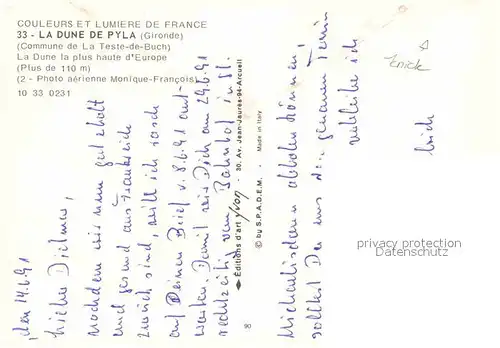 COULEURS ET LUMIERE DE FRANCE
33 - LA DUNE DE PYLA (Gironde)
(Commune de La Teste-de-Buch)
La Dune la plus haute d'Europe
(Plus de 110 m)
(2 - Photo aérienne Monique-François)
10 33 0231
, den 14.6.91
Lieber Dietmar,
nachdem wir nun gut erholt
und gesund aus Frankreich
zurück sind, will ich rasch
auf Deinen Brief v. 8.6.91 ant-
worten. Damit wir Dich am 29.6.91
rechtzeitig vom Bahnhof in St.
Michaelisdonn abholen können,
solltest Du uns den genauen Termin
verbleibe ich
Erich
Erick
Editions d'art Yvon
30, Av. Jean-Jaurès-94-Arcueil
© by S.P.A.D.E.M. - Made in Italy
90
privacy protection
Datenschutz